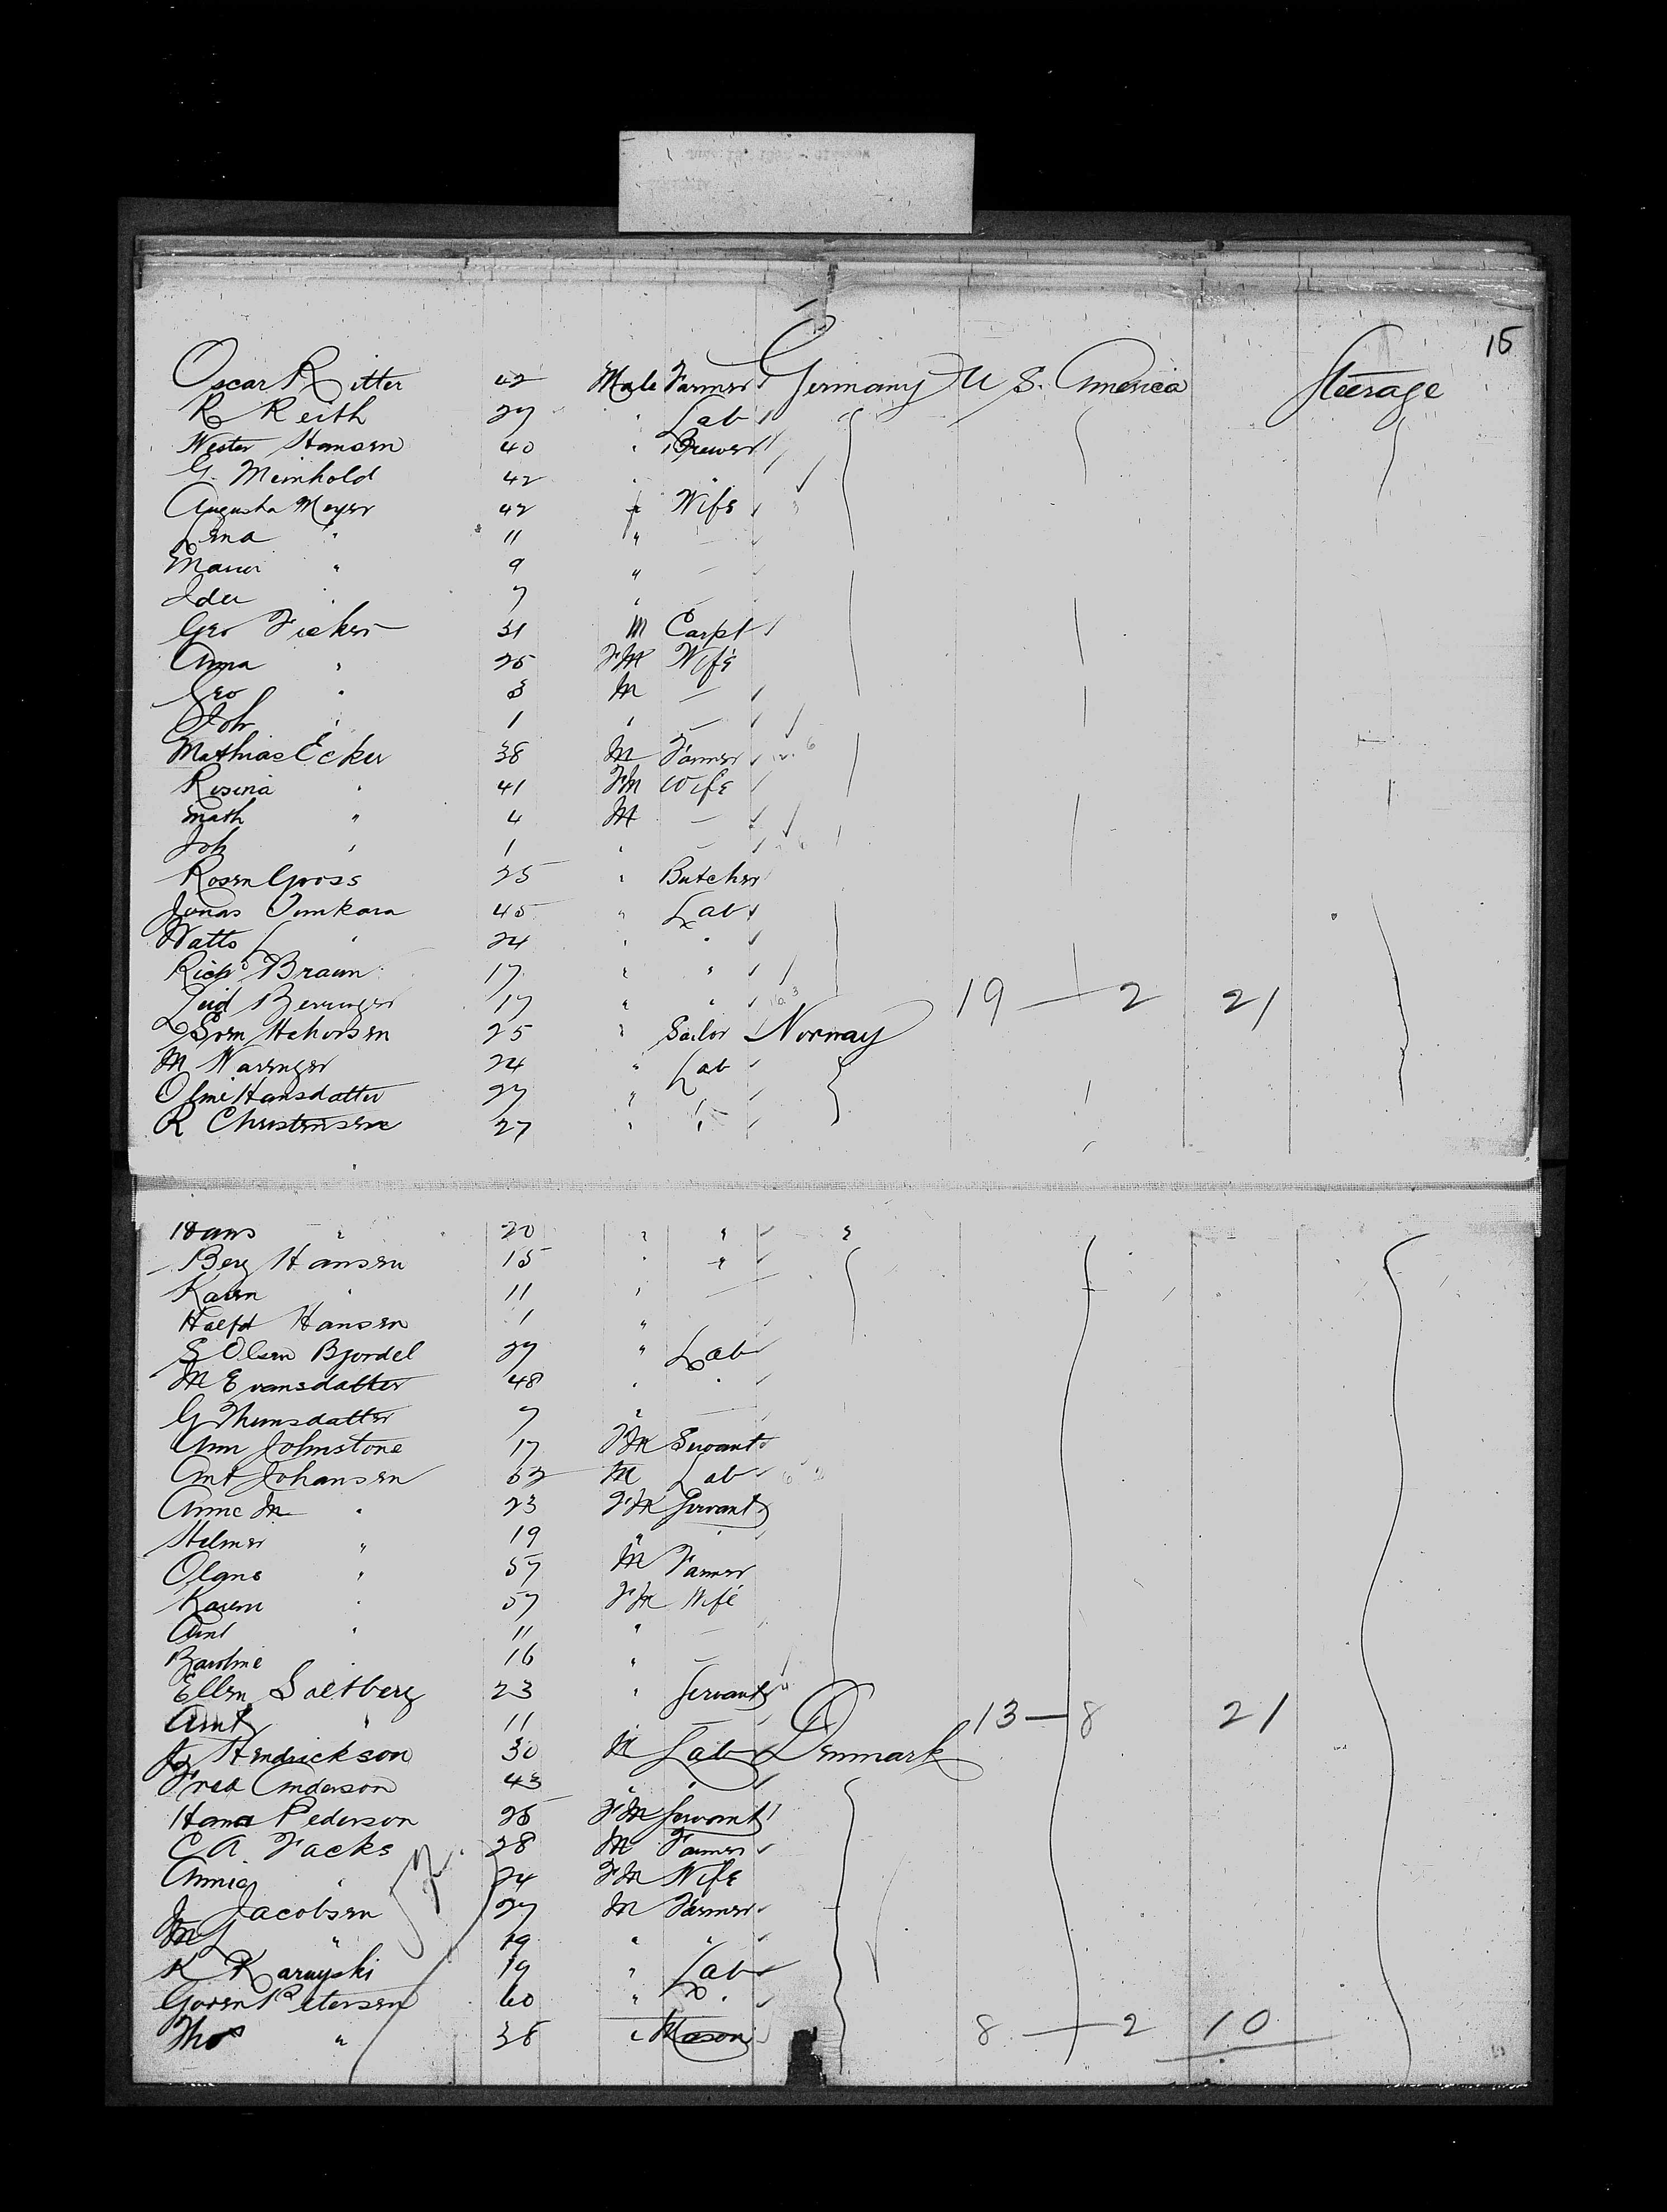 15
Oscar Ritter 42 Male Farmer Germany U S. America Steerage
R Reith 27 " Lab
Wester Hansen 40 " Brewer
G. Meinhold 42 " "
Augusta Meyer 42 f Wife
Lena " 11 " —
" 9 " —
Ida " 7 " —
Geo Ficker 31 M Carpt
Anna " 25 FM Wife
Geo " 3 M —
Joh " 1 " —
Mathias Ecker 38 M Farmer
Rosina " 41 FM Wife
Math " 4 M —
Joh " 1 " —
Rosen Gross 25 " Butcher
Jonas Tumkara 45 " Lab
Watts L " 24 " "
Richd Braun 17 " "
Berringer 17 " " 19 — 2 21
25 " Sailor Norway
M 24 " Lab
Hansdatter 27 " "
R Christensene 27 " "
Hans " 20 " " "
Berg Hansen 15 " "
Karen " 11 " —
Halfd Hansen 1 "
S Olsen Bjordel 27 " Lab
M Evansdatter 48 " "
G Thunsdatter 7 " —
Ann Johnstone 17 FM Servant
Ant Johansen 52 M Lab
Anne M " 23 FM Servant
Helmer " 19 " "
Olane " 57 M Farmer
Karen " 57 FM Wife
Arnt " 11 " —
Baroline 16 " —
Ellen Saltberg 23 " Servant
Arnt " 11 — 13 — 8 21
Hendrickson 30 M Lab Denmark
Fred Anderson 43 " "
Hana Pederson 25 FM Servant
C A. Facks 28 M Farmer
Annie " 24 FM Wife
J Jacobsen 27 M Farmer
M L " 19 " "
K Karnyski 19 " Lab
Goren Petersen 60 " "
Thos " 38 " Mason 8 — 2 10